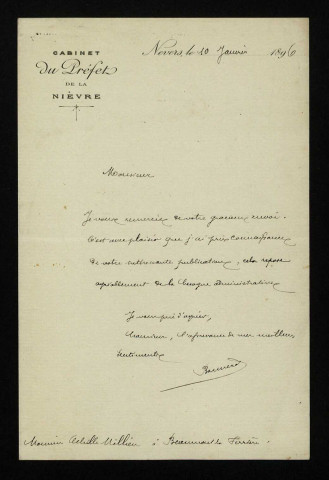 CABINET
du Préfet
DE LA
NIÈVRE
Nevers, le 10 Janvier 1896
Monsieur
Je vous remercie de votre gracieux envoi.
C'est avec plaisir que j'ai pris connaissance
de votre intéressante publication, cela repose
agréablement de la besogne administrative
Je vous prie d'agréer,
Monsieur, l'assurance de mes meilleurs
sentiments
Monsieur Achille Millien à Beaumont la Ferrière